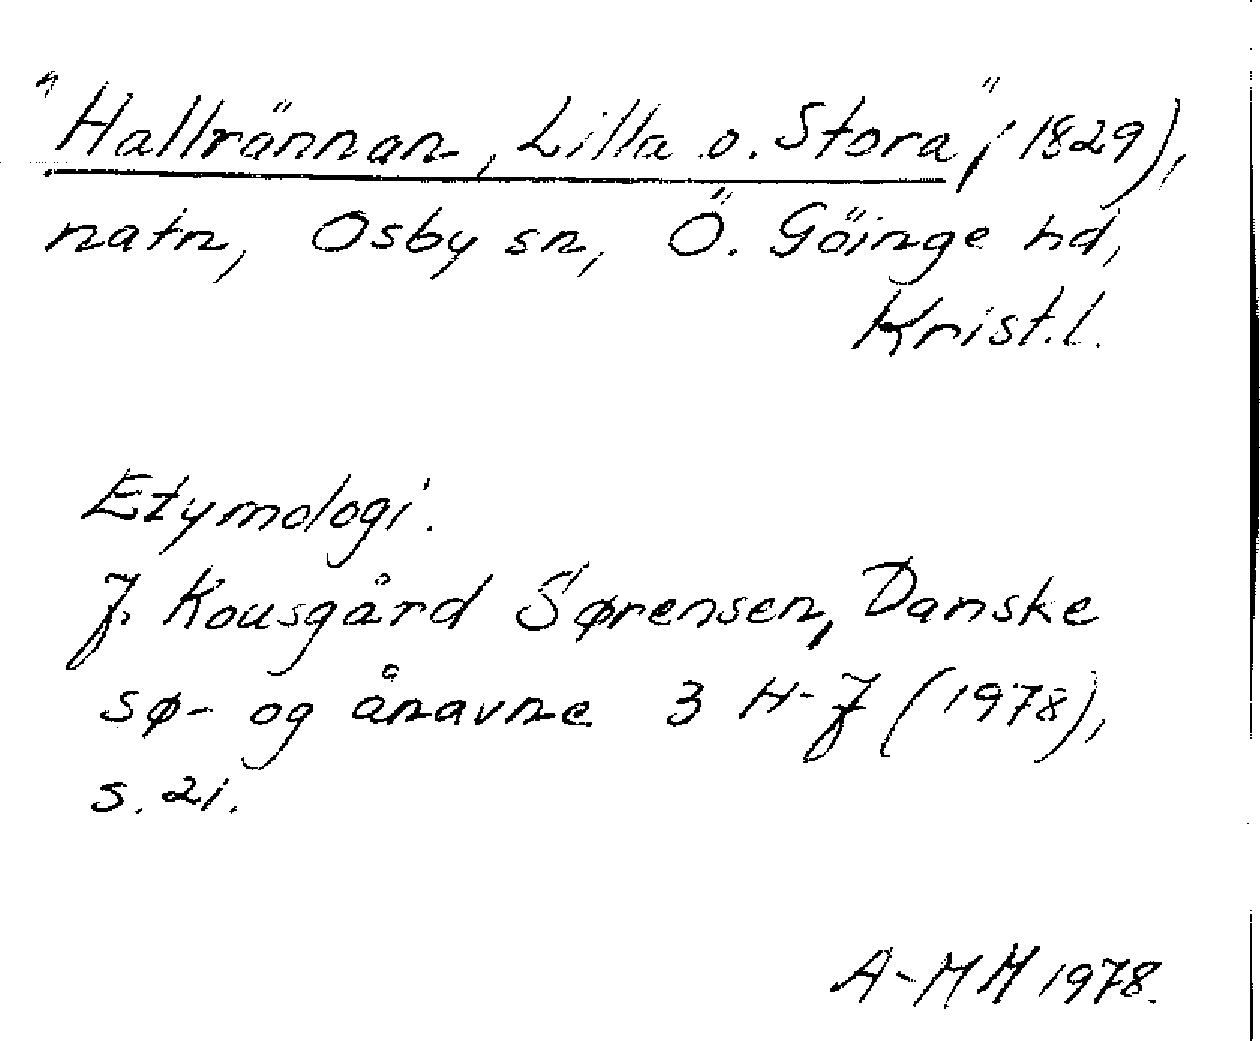 "Hallrännan, Lilla o. Stora" (1829),
natn, Osby sn, Ö. Göinge hd,
Krist.l.
Etymologi.
J. Kousgård Sørensen, Danske
sø- og ånavne 3 H-J (1978),
s. 21.
A-MH 1978.